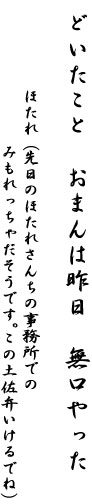 どいたこと　おまんは昨日　無口やった
ほたれ（先日のほたれさんちの事務所での
みもれっちゃだそうです。この土佐弁いけるでね）